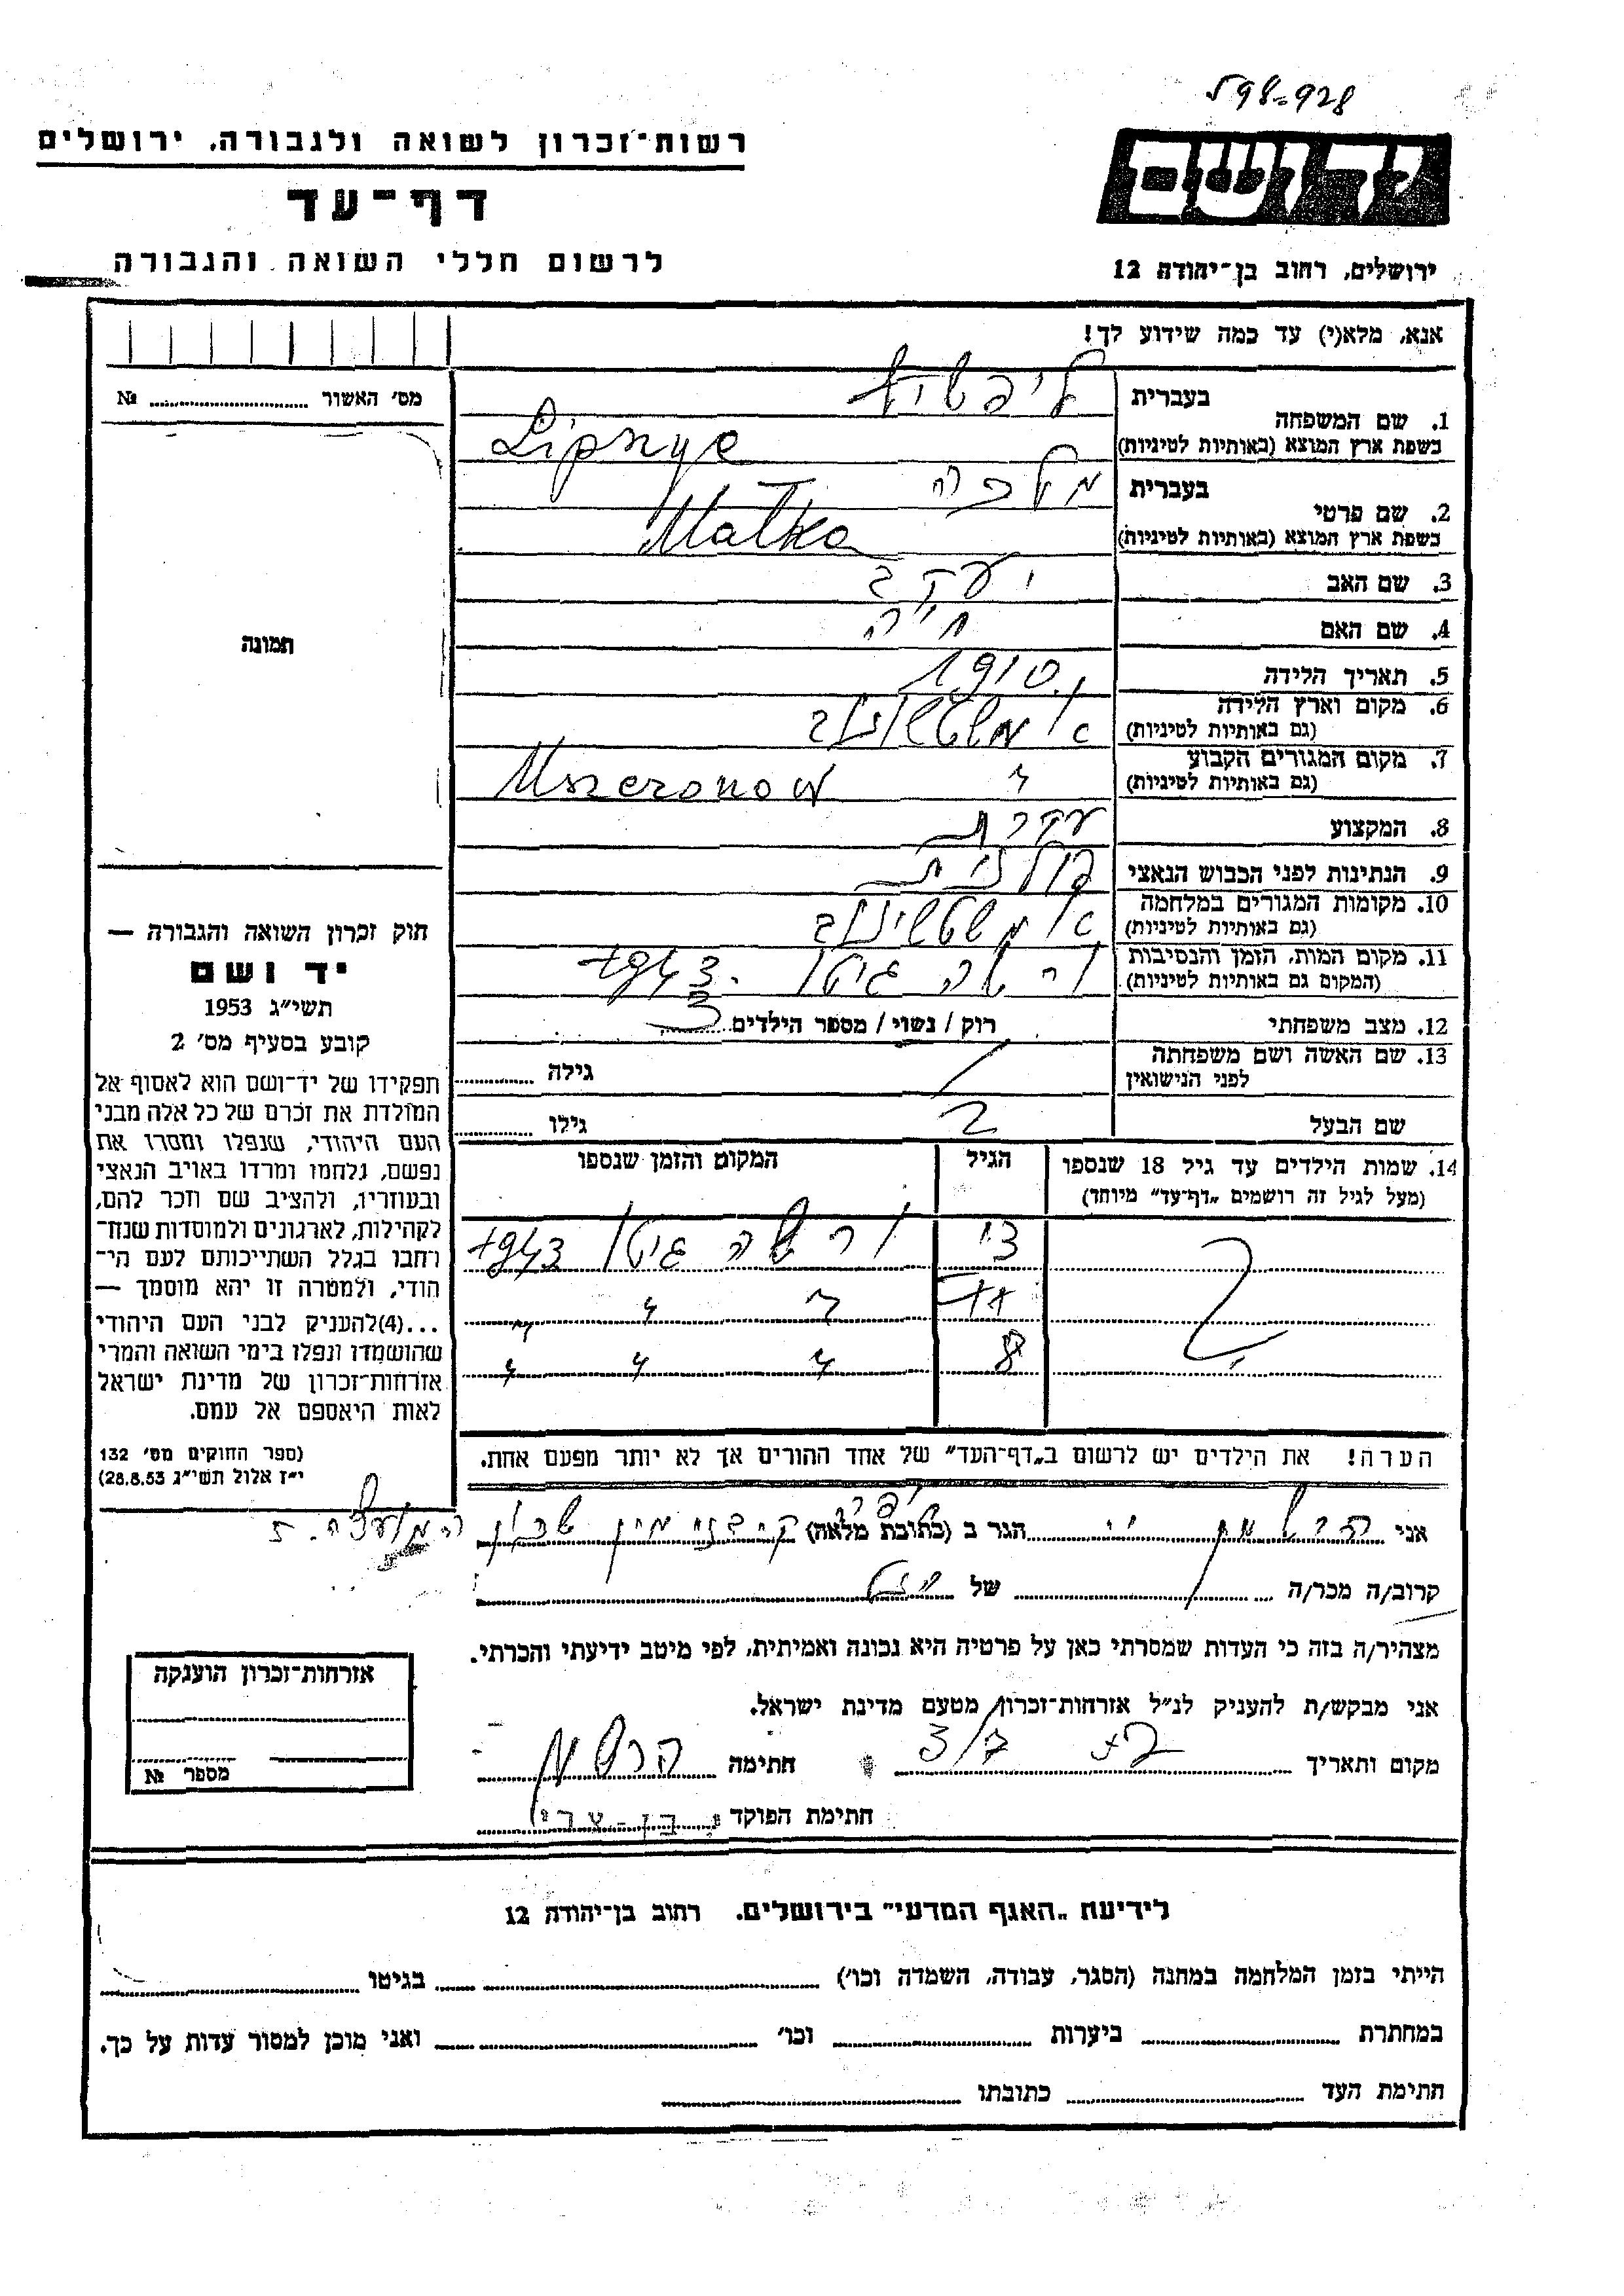 598-928
רשות־זכרון לשואה ולגבורה. ירושלים
דף־עד
לרשום חללי השואה והגבורה
ידושם
ירושלים, רחוב בן־יהודה 12
אנא, מלא(י) עד כמה שידוע לך!
מס׳ האשור № 
1. שם המשפחה
בעברית
בשפת ארץ המוצא (באותיות לטיניות)
Lipszyc
2. שם פרטי
בעברית מלכה
בשפת ארץ המוצא (באותיות לטיניות) Malka
3. שם האב יעקב
4. שם האם חיה
5. תאריך הלידה 1910
6. מקום וארץ הלידה
(גם באותיות לטיניות)
7. מקום המגורים הקבוע
(גם באותיות לטיניות) Mszczonow
8. המקצוע עקרת
9. הנתינות לפני הכבוש הנאצי פולנית
10. מקומות המגורים במלחמה
(גם באותיות לטיניות)
11. מקום המות, הזמן והנסיבות ורשה גיטו 1943
(המקום גם באותיות לטיניות)
12. מצב משפחתי רוק / נשוי / מספר הילדים 3
13. שם האשה ושם משפחתה
לפני הנישואין
גילה
שם הבעל
גילו
14. שמות הילדים עד גיל 18 שנספו
(מעל לגיל זה רושמים „דף־עד" מיוחד)
הגיל
המקום והזמן שנספו
13 ורשה גיטו 1943
11 " " "
8 " " "
הערה! את הילדים יש לרשום ב„דף־העד" של אחד ההורים אך לא יותר מפעם אחת.
תמונה
חוק זכרון השואה והגבורה —
יד ושם
תשי״ג 1953
קובע בסעיף מס׳ 2
תפקידו של יד־ושם הוא לאסוף אל
המולדת את זכרם של כל אלה מבני
העם היהודי, שנפלו ומסרו את
נפשם, נלחמו ומרדו באויב הנאצי
ובעוזריו, ולהציב שם וזכר להם,
לקהילות, לארגונים ולמוסדות שנח־
רחבו בגלל השתייכותם לעם הי־
הודי, ולמטרה זו יהא מוסמך —
...(4)להעניק לבני העם היהודי
שהושמדו ונפלו בימי השואה והמרי
אזרחות־זכרון של מדינת ישראל
לאות היאספם אל עמם.
(ספר החוקים מס׳ 132
י״ז אלול תשי״ג 28.8.53)
אני הגר ב (כתובת מלאה)
קרוב/ה מכר/ה של
מצהיר/ה בזה כי העדות שמסרתי כאן על פרטיה היא נכונה ואמיתית, לפי מיטב ידיעתי והכרתי.
אני מבקש/ת להעניק לנ״ל אזרחות־זכרון מטעם מדינת ישראל.
מקום ותאריך 3/7 חתימה
חתימת הפוקד
אזרחות־זכרון הוענקה
מספר №
לידיעת „האגף המדעי" בירושלים. רחוב בן־יהודה 12
הייתי בזמן המלחמה במחנה (הסגר, עבודה, השמדה וכו׳) בגיטו
במחתרת ביערות וכו׳ ואני מוכן למסור עדות על כך.
חתימת העד כתובתו